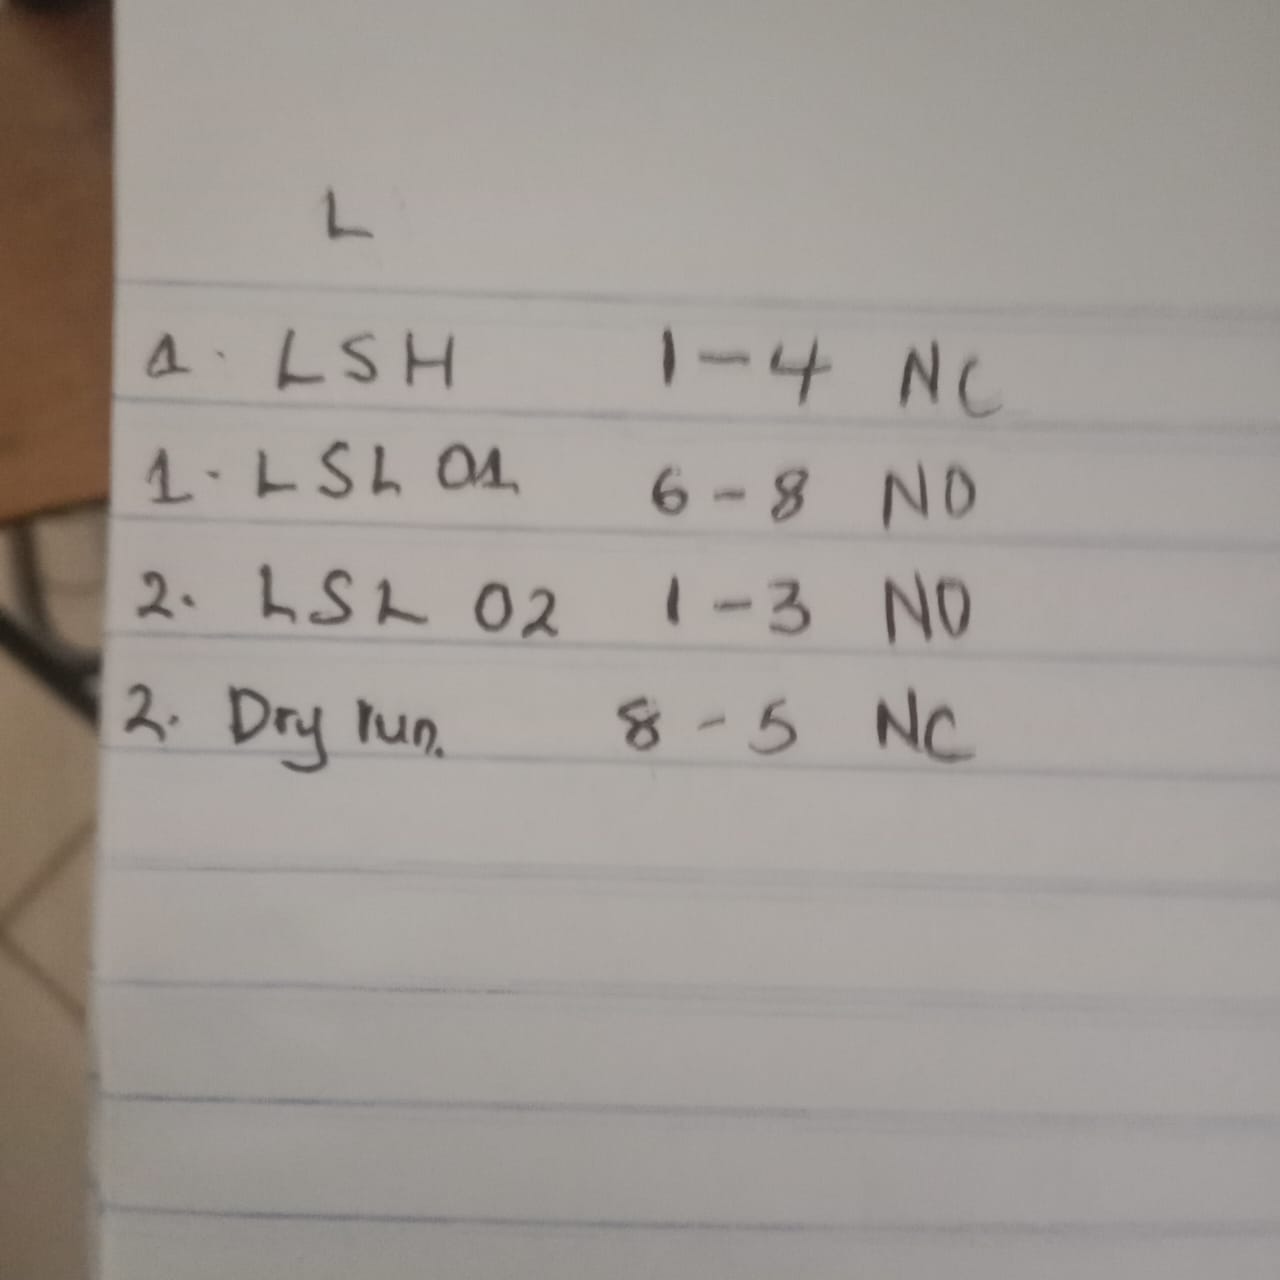 L
1. LSH 1-4 NC
1. LSL 01 6-8 NO
2. LSL 02 1-3 NO
2. Dry run. 8-5 NC